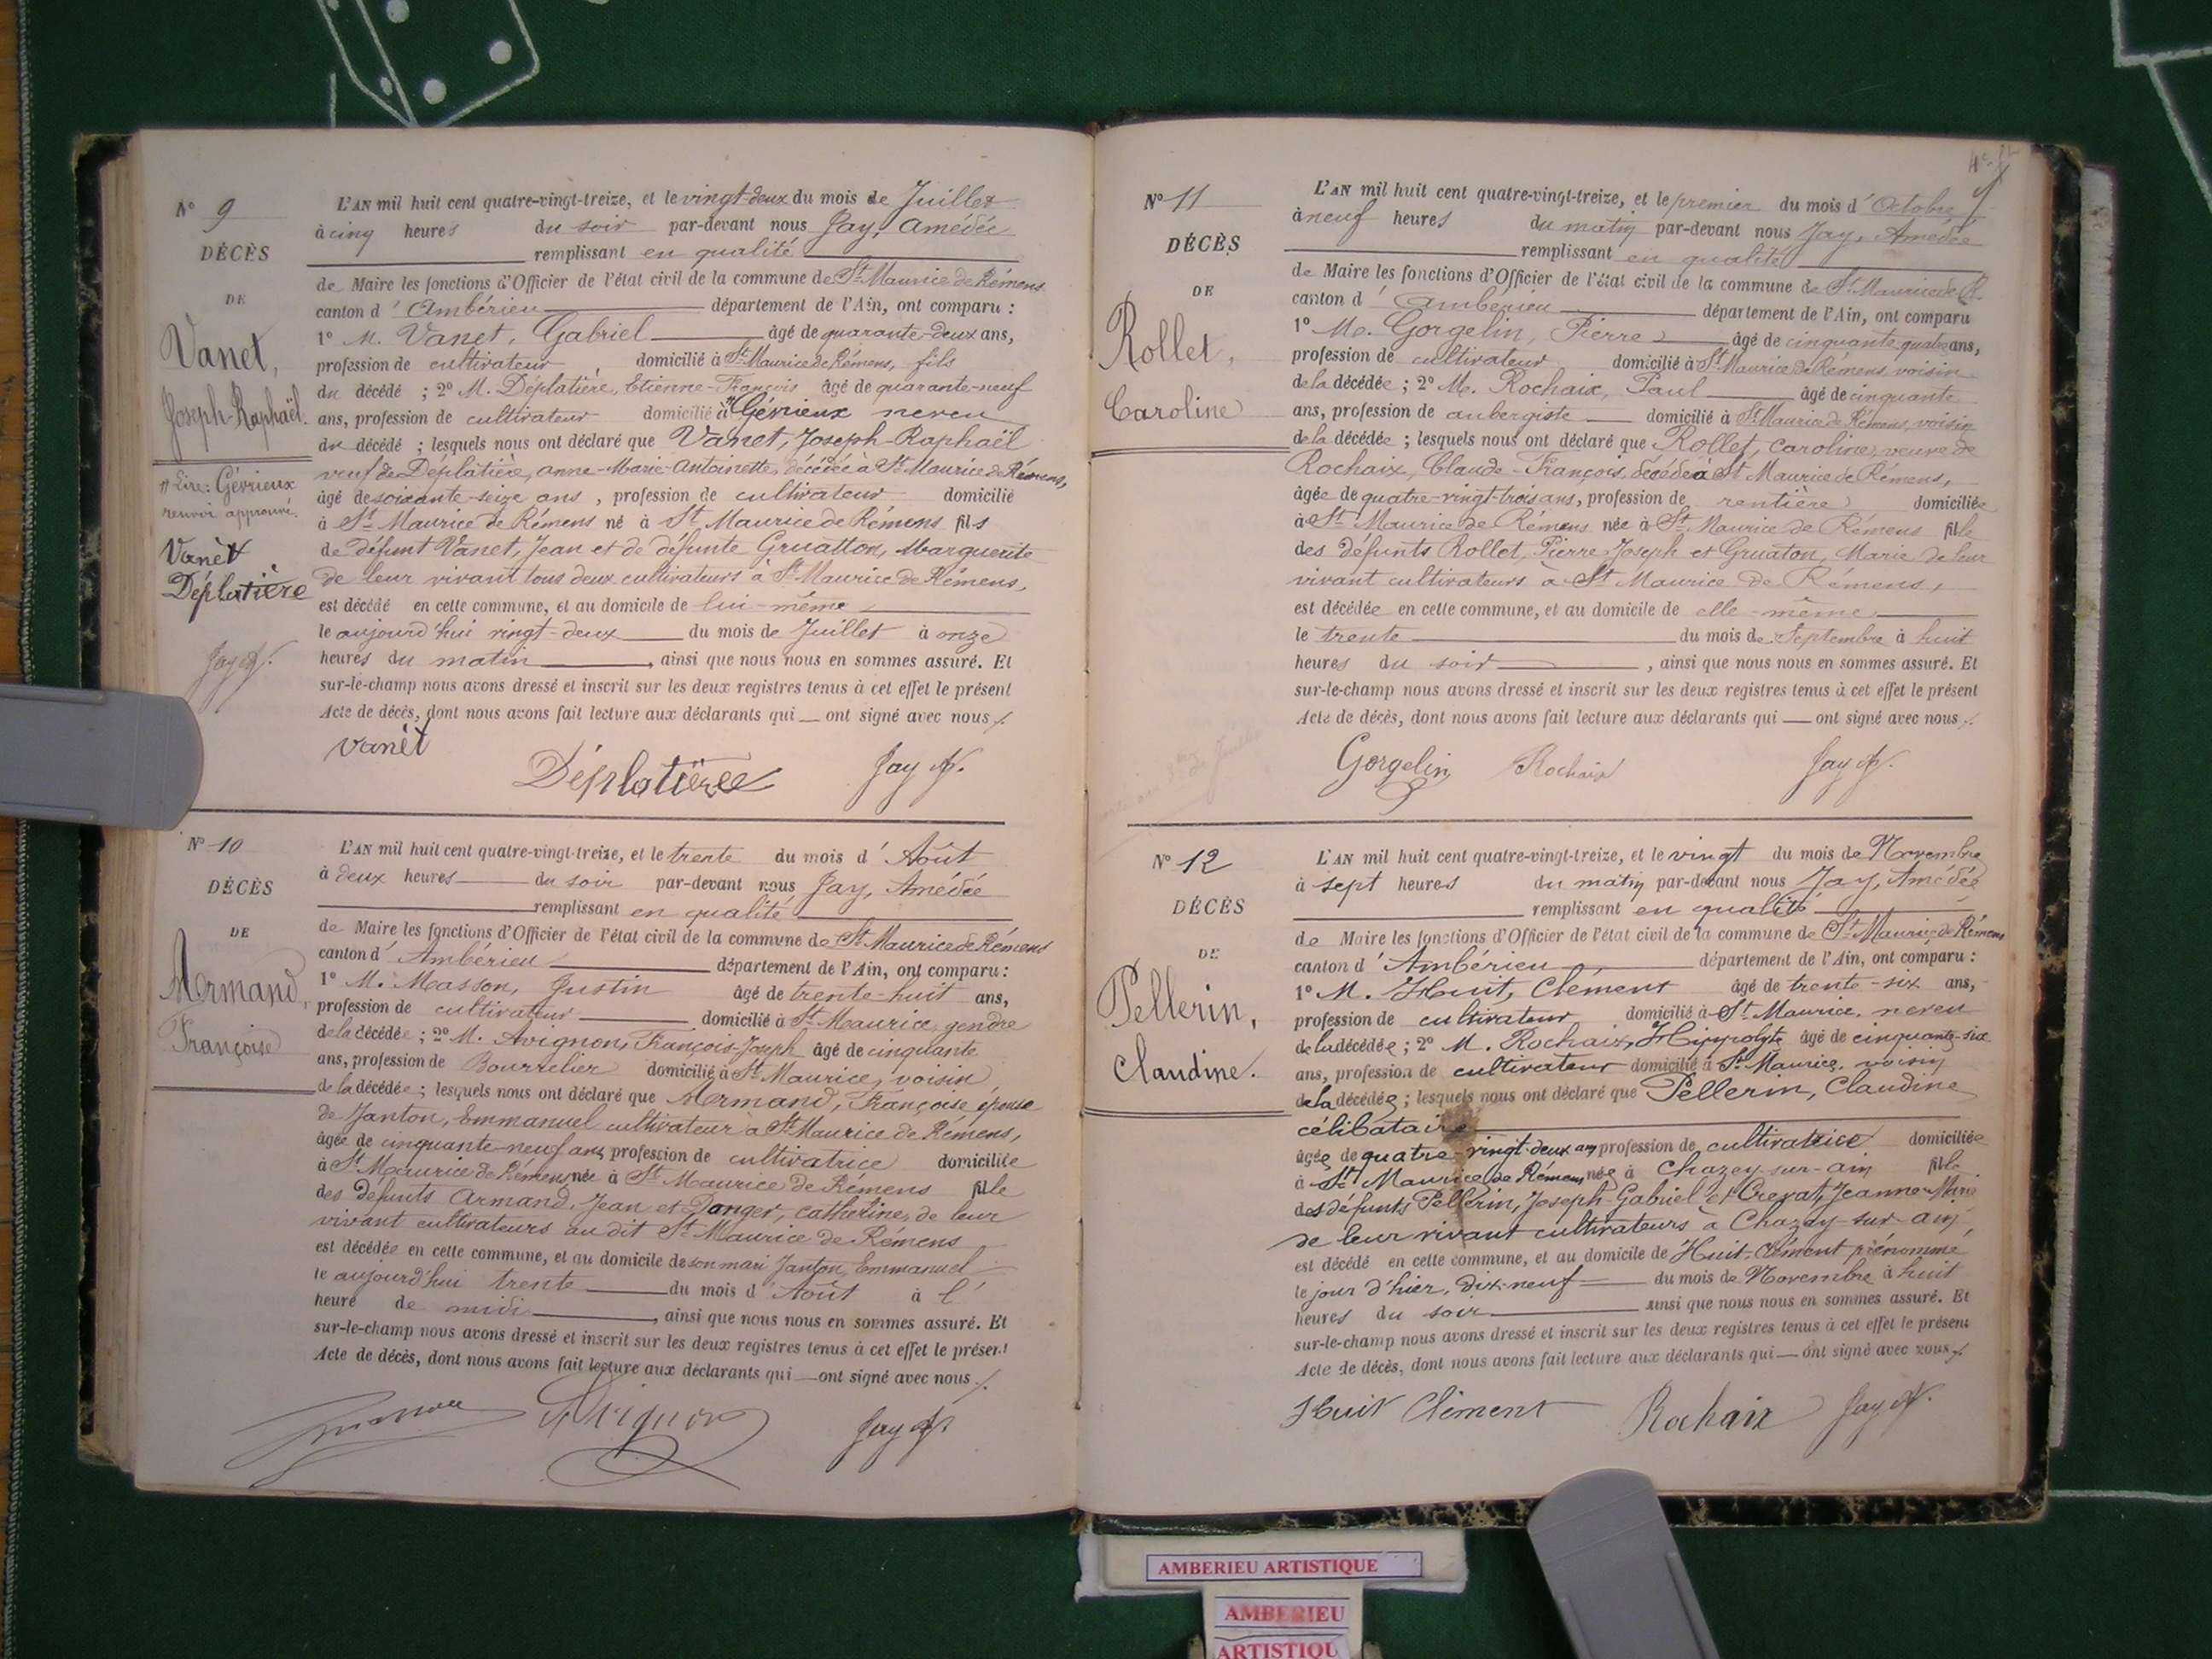 N° 9
DÉCÈS
DE
Vanet,
Joseph-Raphaël.
# Lire: Gévrieux
renvoi approuvé.
Vanèt
Déplatière
Jay A.
L'AN mil huit cent quatre-vingt-treize, et le vingt-deux du mois de Juillet
à cinq heures du soir par-devant nous Jay, Amédée
remplissant en qualité
de Maire les fonctions d'Officier de l'état civil de la commune de St Maurice de Rémens
canton d' Ambérieu département de l'Ain, ont comparu :
1° M. Vanet, Gabriel âgé de quarante-deux ans,
profession de cultivateur domicilié à St Maurice de Rémens, fils
du décédé ; 2° M. Déplatière, Etienne-François âgé de quarante-neuf
ans, profession de cultivateur domicilié à # Génieux neveu
du décédé ; lesquels nous ont déclaré que Vanet, Joseph-Raphaël
veuf de Déplatière, Anne-Marie-Antoinette, décédée à St Maurice de Rémens,
âgé de soixante-seize ans , profession de cultivateur domicilié
à St Maurice de Rémens né à St Maurice de Rémens fils
de défunt Vanet, Jean et de défunte Gruatton, Marguerite
de leur vivant tous deux cultivateurs à St Maurice de Rémens,
est décédé en cette commune, et au domicile de lui-même
le aujourd'hui vingt-deux du mois de Juillet à onze
heures du matin , ainsi que nous nous en sommes assuré. Et
sur-le-champ nous avons dressé et inscrit sur les deux registres tenus à cet effet le présent
Acte de décès, dont nous avons fait lecture aux déclarants qui — ont signé avec nous ./.
Vanèt Déplatière Jay A.
N° 10
DÉCÈS
DE
Armand,
Françoise
L'AN mil huit cent quatre-vingt-treize, et le trente du mois d' Août
à deux heures du soir par-devant nous Jay, Amédée
remplissant en qualité
de Maire les fonctions d'Officier de l'état civil de la commune de St Maurice de Rémens
canton d' Ambérieu département de l'Ain, ont comparu :
1° M. Masson, Justin âgé de trente-huit ans,
profession de cultivateur domicilié à St Maurice, gendre
de la décédée ; 2° M. Avignon, François-Joseph âgé de cinquante
ans, profession de Bourrelier domicilié à St Maurice, voisin
de la décédée ; lesquels nous ont déclaré que Armand, Françoise, épouse
de Janton, Emmanuel cultivateur à St Maurice de Rémens,
âgée de cinquante-neuf ans, profession de cultivatrice domiciliée
à St Maurice de Rémens, née à St Maurice de Rémens fille
des défunts Armand, Jean et Danger, Catherine, de leur
vivant cultivateurs au dit St Maurice de Rémens
est décédée en cette commune, et au domicile de son mari Janton, Emmanuel
le aujourd'hui trente du mois d' Août à l'
heure de midi , ainsi que nous nous en sommes assuré. Et
sur-le-champ nous avons dressé et inscrit sur les deux registres tenus à cet effet le présent
Acte de décès, dont nous avons fait lecture aux déclarants qui — ont signé avec nous ./.
Masson Avignon Jay A.
N° 11
DÉCÈS
DE
Rollet,
Caroline
L'AN mil huit cent quatre-vingt-treize, et le premier du mois d' Octobre
à neuf heures du matin par-devant nous Jay, Amédée
remplissant en qualité
de Maire les fonctions d'Officier de l'état civil de la commune de St Maurice de R.
canton d' Ambérieu département de l'Ain, ont comparu
1° M. Gorgelin, Pierre âgé de cinquante-quatre ans,
profession de cultivateur domicilié à St Maurice de Rémens voisin
de la décédée ; 2° M. Rochaix, Paul âgé de cinquante
ans, profession de aubergiste domicilié à St Maurice de Rémens, voisin
de la décédée ; lesquels nous ont déclaré que Rollet, Caroline, veuve de
Rochaix, Claude-François, décédé à St Maurice de Rémens,
âgée de quatre-vingt-trois ans, profession de rentière domiciliée
à St Maurice de Rémens née à St Maurice de Rémens fille
des défunts Rollet, Pierre-Joseph et Gruaton, Marie de leur
vivant cultivateurs à St Maurice de Rémens,
est décédée en cette commune, et au domicile de elle-même
le trente du mois de Septembre à huit
heures du soir , ainsi que nous nous en sommes assuré. Et
sur-le-champ nous avons dressé et inscrit sur les deux registres tenus à cet effet le présent
Acte de décès, dont nous avons fait lecture aux déclarants qui — ont signé avec nous ./.
Gorgelin Rochaix Jay A.
N° 12
DÉCÈS
DE
Pellerin,
Claudine.
L'AN mil huit cent quatre-vingt-treize, et le vingt du mois de Novembre
à sept heures du matin par-devant nous Jay, Amédée
remplissant en qualité
de Maire les fonctions d'Officier de l'état civil de la commune de St Maurice de Rémens
canton d' Ambérieu département de l'Ain, ont comparu :
1° M. Huit, Clément âgé de trente-six ans,
profession de cultivateur domicilié à St Maurice, neveu
de la décédée ; 2° M. Rochaix, Hippolyte âgé de cinquante-six
ans, profession de cultivateur domicilié à St Maurice, voisin
de la décédée ; lesquels nous ont déclaré que Pellerin, Claudine
célibataire
âgée de quatre-vingt-deux ans profession de cultivatrice domiciliée
à St Maurice de Rémens née à Chazey-sur-Ain fille
des défunts Pellerin, Joseph-Gabriel et Crevat, Jeanne-Marie
de leur vivant cultivateurs à Chazey-sur-Ain,
est décédé en cette commune, et au domicile de Huit-Clément prénommé
le jour d'hier, dix-neuf du mois de Novembre à huit
heures du soir ainsi que nous nous en sommes assuré. Et
sur-le-champ nous avons dressé et inscrit sur les deux registres tenus à cet effet le présent
Acte de décès, dont nous avons fait lecture aux déclarants qui — ont signé avec nous ./.
Huit Clément Rochaix Jay A.
AMBERIEU ARTISTIQUE
AMBERIEU
ARTISTIQU